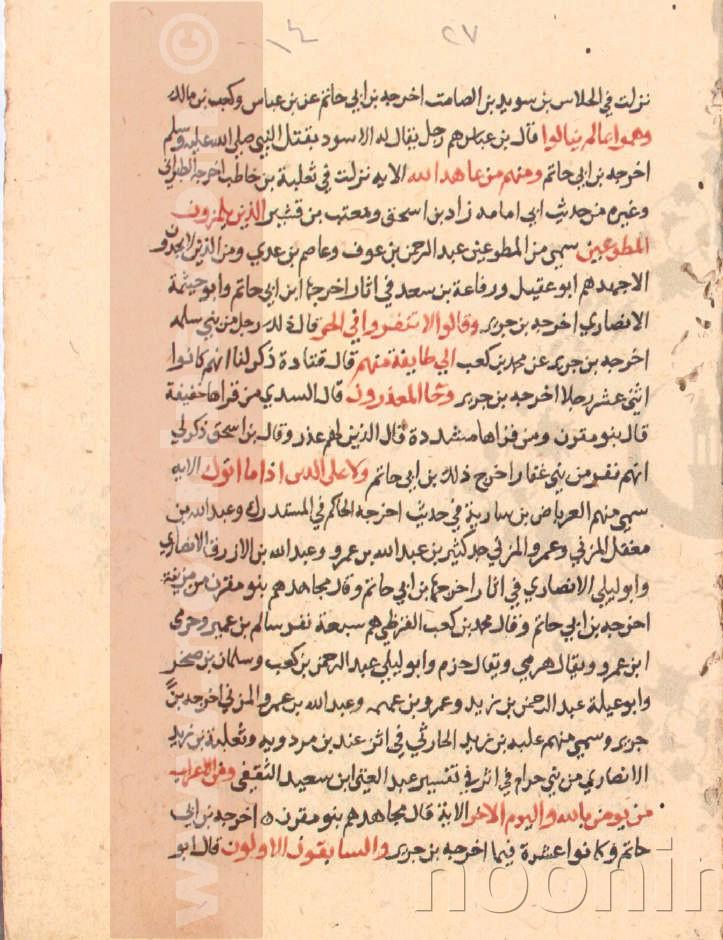 ١٤ ٢٧
نزلت في الجلاس بن سويد بن الصامت اخرجه بن ابي حاتم عن بن عباس وكعب بن مالك
وهموا بما لم ينالوا قال بن عباس هم رجل يقال له الاسود بقتل النبي صلى الله عليه وسلم
اخرجه بن ابي حاتم ومنهم من عاهد الله الايه نزلت في ثعلبة بن حاطب اخرجه الطبراني
وغيره من حديث ابي امامه زاد بن اسحق ومعتب من قشير الذين يلمزون
المطوعين سمي من المطوعين عبد الرحمن بن عوف وعاصم بن عدي ومن الذين لا يجدون
الا جهدهم ابو عقيل ورفاعة بن سعد في اثار اخرجها ابن ابي حاتم وابو خيثمة
الانصاري اخرجه بن جرير وقالوا لا تنفروا في الحر قال ذلك رجل من بني سلمه
اخرجه بن جرير عن محمد بن كعب الى طايفة منهم قال قتادة ذكر لنا انهم كانوا
اثني عشر رجلا اخرجه بن جرير وجا المعذرون قال السدي من قراها خفيفة
قال بنو مقرن ومن قراها مشددة قال الذين لهم عذر وقال بن اسحق ذكر لي
انهم نفر من بني غفار اخرج ذلك بن ابي حاتم ولا على الذين اذا ما اتوك الايه
سمي منهم العرباض بن سارية في حديث اخرجه الحاكم في المستدرك وعبد الله بن
مغفل المزني وعمرو المزني جد كثير بن عبد الله بن عمرو وعبد الله بن الازرق الانصاري
وابو ليلى الانصاري في اثار اخرجها بن ابي حاتم وقال مجاهد هم بنو مقرن من مزينة
اخرجه بن ابي حاتم وقال محمد بن كعب القرظي هم سبعة نفر سالم بن عمير وحرمي
ابن عمرو ويقال هرمي ويقال حزم وابو ليلى عبد الرحمن بن كعب وسلمان بن صخر
وابو عيلة عبد الرحمن بن زيد وعمرو بن عمه وعبد الله بن عمرو المزني اخرجه بن
جرير وسمي منهم علبه بن زيد الحارثي في اثر عند بن مردويه وثعلبة بن زيد
الانصاري من بني حرام في اثر في تفسير عبد الغني ابن سعيد الثقفي ومن الاعراب
من يومن بالله واليوم الاخر الاية قال مجاهد هم بنو مقرن اخرجه بن ابي
حاتم وكانوا عشرة فيما اخرجه بن جرير والسابقون الاولون قال ابو
noonin